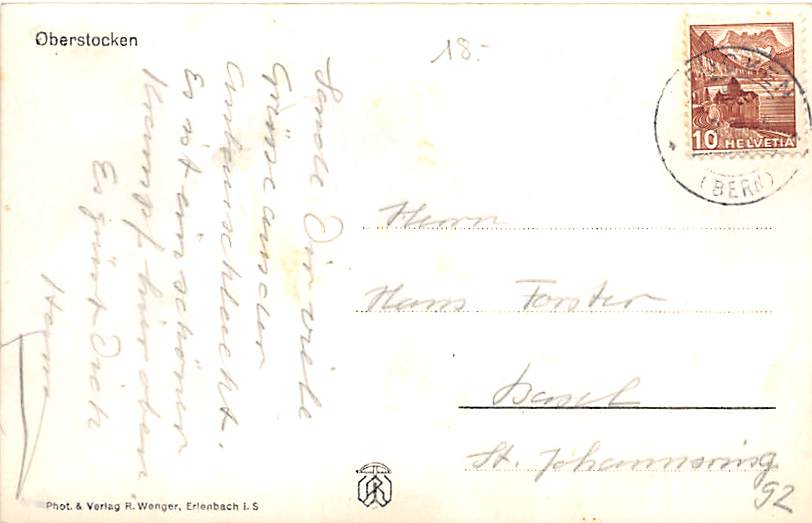 Oberstocken
18.-
10
HELVETIA
(BERN)
Sende Dir viele
Grüsse aus der
Es ist ein schöner
Kampf hier oben,
Es grüsst Dich
Herrn
Hans Forster
Basel
St. Johannsring
92
Phot. & Verlag R. Wenger, Erlenbach i. S